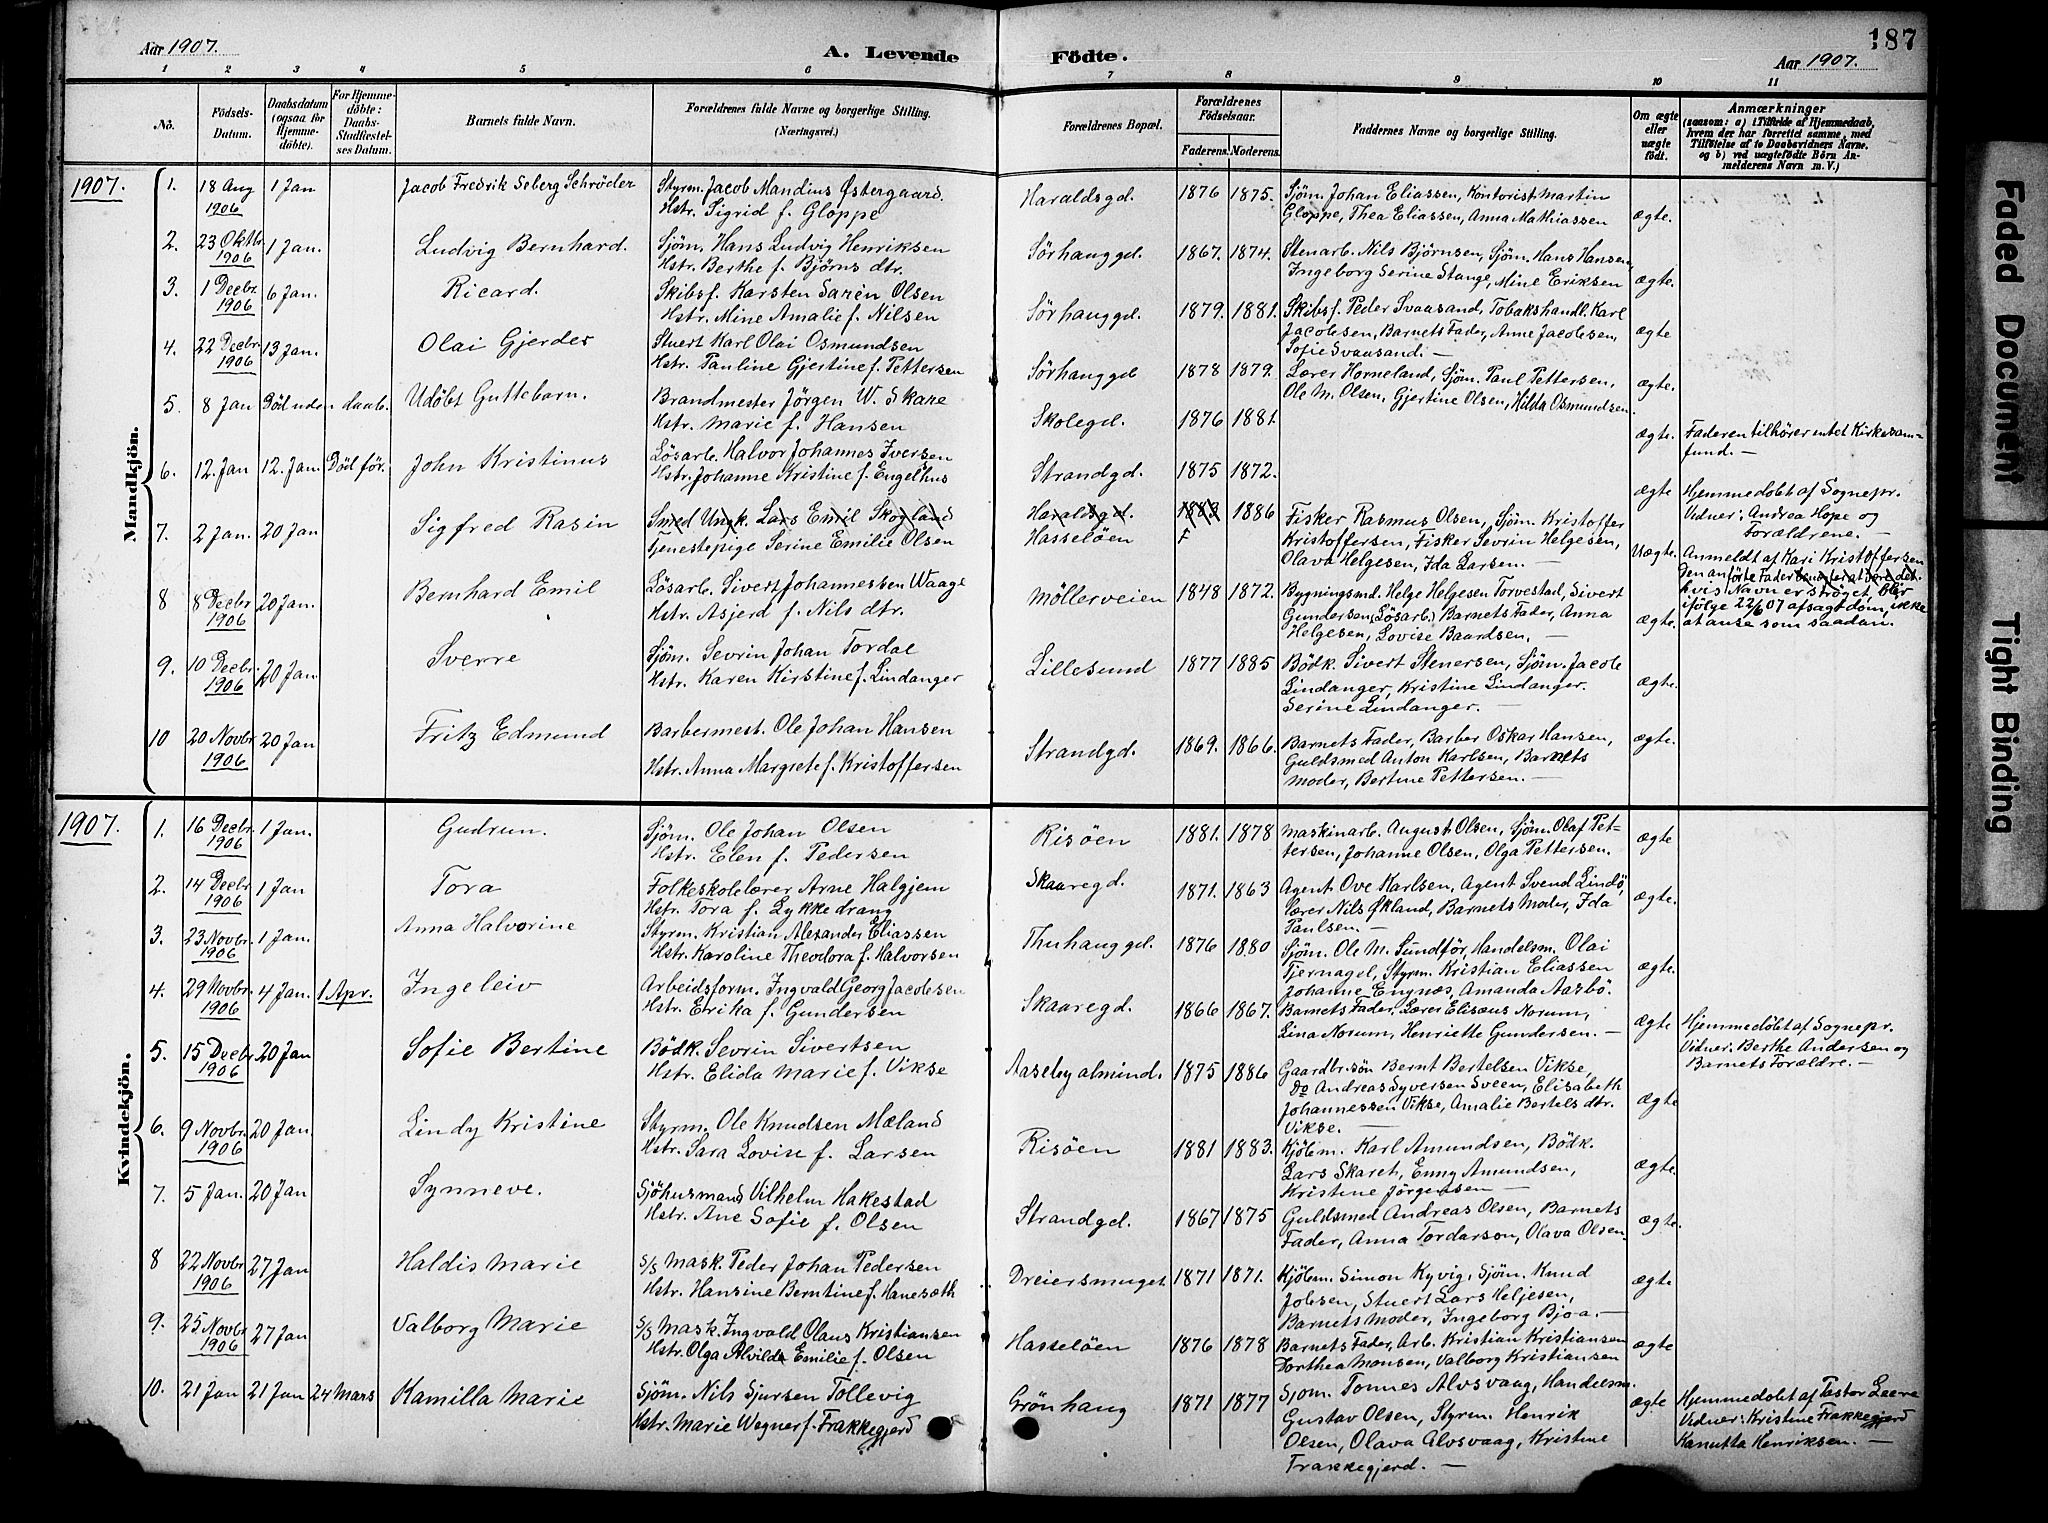 187
Aar 1907.
A. Levende Födte.
Aar 1907.
1 2 3 4 5 6 7 8 9 10 11
No.
Födsels-
Datum.
Daabsdatum
(ogsaa for
Hjemme-
döbte).
For Hjemme-
döbte:
Daabs-
Stadfæstel-
ses Datum.
Barnets fulde Navn.
Forældrenes fulde Navne og borgerlige Stilling.
(Næringsvei.)
Forældrenes Bopæl.
Forældrenes
Födselsaar.
Faderens. Moderens.
Faddernes Navne og borgerlige Stilling.
Om ægte
eller
uægte
födt.
Anmærkninger
(saasom: a) i Tilfælde af Hjemmedaab,
hvem der har forrettet samme, med
Tilföielse af to Daabsvidners Navne.
og b) ved uægtefödte Börn An-
melderens Navn m. V.)
Mandkjön.
1907.
1. 18 Aug 1906 1 Jan Jacob Fredrik Seberg Schröder
Styrm. Jacob Mandius Østergaard.
Hstr. Sigrid f. Gloppe
Haraldsgd. 1876 1875.
Sjöm. Johan Eliassen, Kontorist Martin
Gloppe, Thea Eliassen, Anna Mathiassen
ægte.
2. 23 Oktbr. 1906 1 Jan. Ludvig Bernhard.
Sjöm. Hans Ludvig Henriksen
Hstr. Berthe f. Bjørns dtr.
Sörhauggd. 1867. 1874.
Stenarb. Nils Bjørnsen, Sjöm. Hans Hansen,
Ingeborg Serine Stange, Mine Eriksen
ægte.
3. 1 Decbr. 1906 6 Jan. Ricard.
Skibsf. Karsten Sarén Olsen
Hstr. Mine Amalie f. Nilsen
Sörhauggd. 1879. 1881.
Skibsf. Peder Svaasand, Tobakshandl. Karl
Jacobsen, Barnets Fader, Anne Jacobsen,
Sofie Svaasand. —
ægte
4. 22 Decbr. 1906 13 Jan. Olai Gjerdes
Stuert Karl Olai Osmundsen
Hstr. Pauline Gjertine f. Pettersen
Sörhauggd 1878 1879.
Lærer Horneland, Sjöm. Paul Pettersen,
Ole M. Olsen, Gjertine Olsen, Hilda Osmundsen.
ægte.
5. 8 Jan Död uden daab. Udöbt Guttebarn.
Brandmester Jörgen W. Skare
Hstr. Marie f. Hansen
Skolegd. 1876 1881.
ægte.
Faderen tilhører intet Kirkesam-
fund. —
6. 12. Jan 12. Jan Död för. John Kristinus
Lösarb. Halvor Johannes Iversen
Hstr. Johanne Kristine f. Engelhus
Strandgd. 1875 1872.
ægte
Hjemmedöbt af Sognepr.
Vidner: Andrea Hope og
Forældrene. —
7. 2 Jan. 20 Jan Sigfred Rasin
Smed Ungk. Lars Emil Skogland
Tjenestepige Serine Emilie Olsen
Haraldsgd.
Hasselöen
1883 1886
F
Fisker Rasmus Olsen, Sjöm. Kristoffer
Kristoffersen, Fisker Sevrin Helgesen,
Olava Helgesen, Ida Larsen. —
Uægte.
Anmeldt af Kari Kristoffersen
Den anförte Fader benegter at være det.
hvis Navn er strøget, blir
ifölge 22/6 07 afsagt dom, ikke
at anse som saadan.
8 8 Decbr. 1906 20 Jan. Bernhard Emil
Lösarb. Sivert Johannessen Waage
Hstr. Asjerd f. Nils dtr.
Möllerveien 1848 1872.
Bygningsmd. Helge Helgesen Torvestad, Sivert
Gundersen (Lösarb.) Barnets Fader, Anna
Helgesen, Lovise Baardsen. —
ægte.
9. 10 Decbr. 1906 20 Jan. Sverre
Sjöm. Sevrin Johan Tordal
Hstr. Karen Kirstine f. Lindanger
Lillesund 1877 1885
Bödk. Sivert Stenersen, Sjöm. Jacob
Lindanger, Kristine Lindanger.
Serine Lindanger. —
ægte.
10 20 Novbr. 1906 20 Jan Fritz Edmund
Barbermest. Ole Johan Hansen
Hstr. Anna Margrete f. Kristoffersen
Strandgd. 1869. 1866.
Barnets Fader, Barber Oskar Hansen,
Guldsmed Anton Karlsen, Barnets
Moder, Bertine Pettersen. —
ægte.
Kvindekjön.
1907.
1. 16 Decbr. 1906 1 Jan. Gudrun.
Sjöm. Ole Johan Olsen
Hstr. Elen f. Pedersen
Risöen 1881. 1878
Maskinarb. August Olsen, Sjöm. Olaf Pet-
tersen, Johanne Olsen, Olga Pettersen.
ægte
2. 14 Decbr. 1906 1 Jan Tora
Folkeskolelærer Arne Halgjem
Hstr. Tora f. Lykkedrang
Skaaregd. 1871. 1863
Agent Ove Karlsen, Agent Svend Lindö,
lærer Nils Økland, Barnets Moder, Ida
Paulsen. —
ægte.
3. 23 Novbr. 1906 1 Jan. Anna Halvorine
Styrm. Kristian Alexander Eliassen
Hstr. Karoline Theodora f. Halvorsen
Thuhauggd. 1876 1880
Sjöm. Ole M. Sundför, Handelsm. Olai
Tjernagel, Styrm. Kristian Eliassen
Johanne Engnæs, Amanda Aasbö.
ægte.
4. 29 Novbr. 1906 4 Jan. 1 Apr. Ingeleiv
Arbeidsform. Ingvald Georg Jacobsen
Hstr. Erika f. Gundersen
Skaaregd. 1866 1867.
Barnets Fader, Lærer Elisæus Norum,
Lina Norum, Henriette Gundersen. —
ægte
Hjemmedöbt af Sognepr.
Vidner: Berthe Andersen og
Barnets Forældre. —
5. 15 Decbr. 1906 20 Jan Sofie Bertine
Bödk. Sevrin Sivertsen
Hstr. Elida Marie f. Vikse
Aasebyalmind. 1875 1886
Gaardbr.sön Bernt Bertelsen Vikse,
Do Andreas Syversen Sveen, Elisabeth
Johannessen Vikse, Amalie Bertels dtr.
Vikse. —
ægte
6. 9 Novbr. 1906 20 Jan. Lindy Kristine
Styrm. Ole Knudsen Mæland
Hstr. Sara Lovise f. Larsen
Risöen 1881 1883.
Kjölem. Karl Amundsen, Bödk.
Lars Skaret, Enny Amundsen,
Kristine Jörgensen —
ægte.
7. 5 Jan. 20 Jan Synneve.
Sjöhusmand Vilhelm Hakestad
Hstr. Ane Sofie f. Olsen
Strandgd. 1867 1875
Guldsmed Andreas Olsen, Barnets
Fader, Anna Tordarson, Olava Olsen.
ægte.
8 22 Novbr. 1906 27 Jan Haldis Marie
S/S Mask. Peder Johan Pedersen
Hstr. Hansine Berntine f. Hanesæth
Dreiersmuget 1871 1871.
Kjölem. Simon Kyvig, Sjöm. Knud
Jobsen, Stuert Lars Heljesen,
Barnets Moder, Ingeborg Bjoa. —
ægte
9. 25 Novbr. 1906 27 Jan Valborg Marie
S/S Mask. Ingvald Olaus Kristiansen
Hstr. Olga Alvilda Emilie f. Olsen
Hasselöen 1876 1878
Barnets Fader, Arb. Kristian Kristiansen
Dorthea Monsen, Valborg Kristiansen
ægte
10. 21 Jan 21 Jan 24 Mars Kamilla Marie
Sjöm. Nils Sjursen Tollevig
Hstr. Marie Wegner f. Frakkegjerd
Grönhaug 1871 1877
Sjöm. Tönnes Alvsvaag, Handelsm.
Gustav Olsen, Styrm. Henrik
Olsen, Olava Alvsvaag, Kristine
Frakkegjerd. —
ægte
Hjemmedöbt af Pastor Leere
Vidner: Kristine Frakkegjerd
Kanutta Henriksen. —
Faded Document
Tight Binding